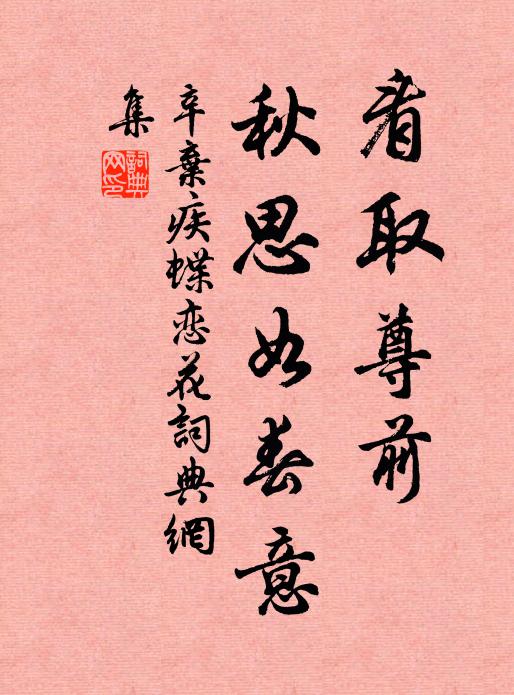 看取尊前
秋思如春意
辛棄疾蝶恋花詞典網
集
詞典網印